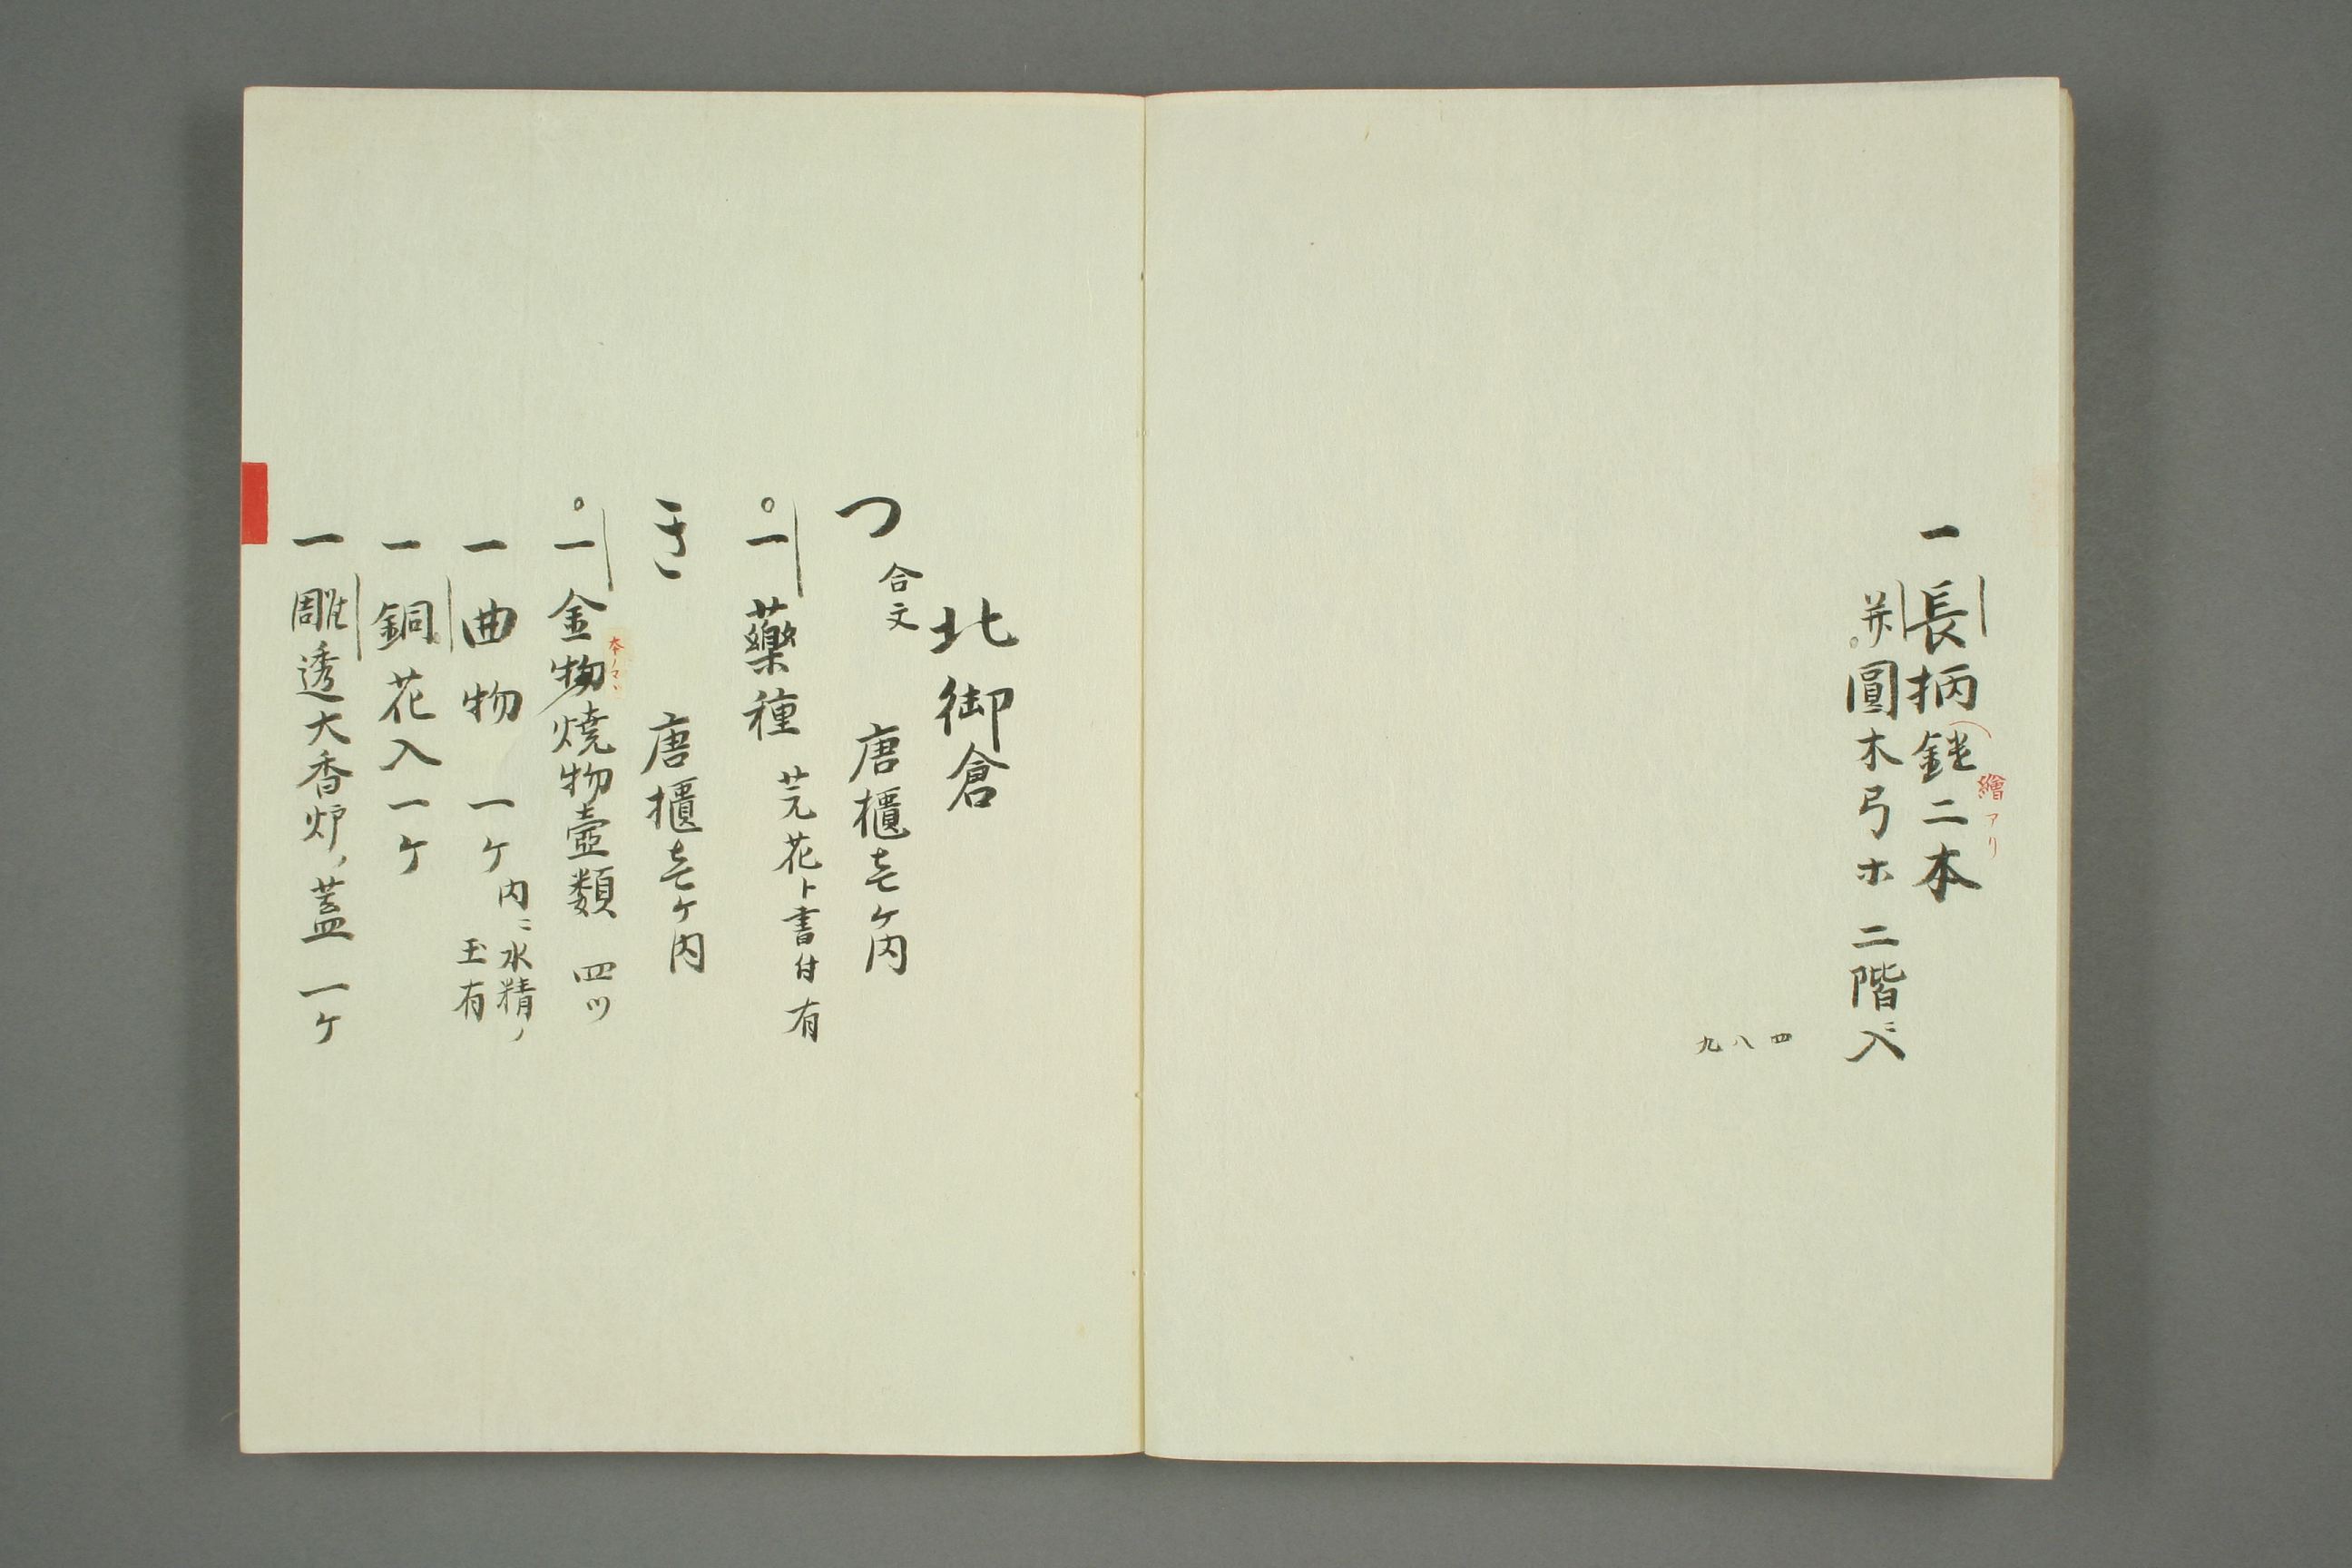 一長柄鉾二本
繪アリ
并圓木弓ホ二階ニ入
四八九
北御倉
つ合文 唐櫃壱ケ内
一藥種 芫花ト書付有
き 唐櫃壱ケ内
一金物燒物壺類 四ツ
本ノマヽ
一曲物 一ケ 内ニ水精ノ
玉有
一銅花入一ケ
一雕透大香炉ノ蓋一ケ